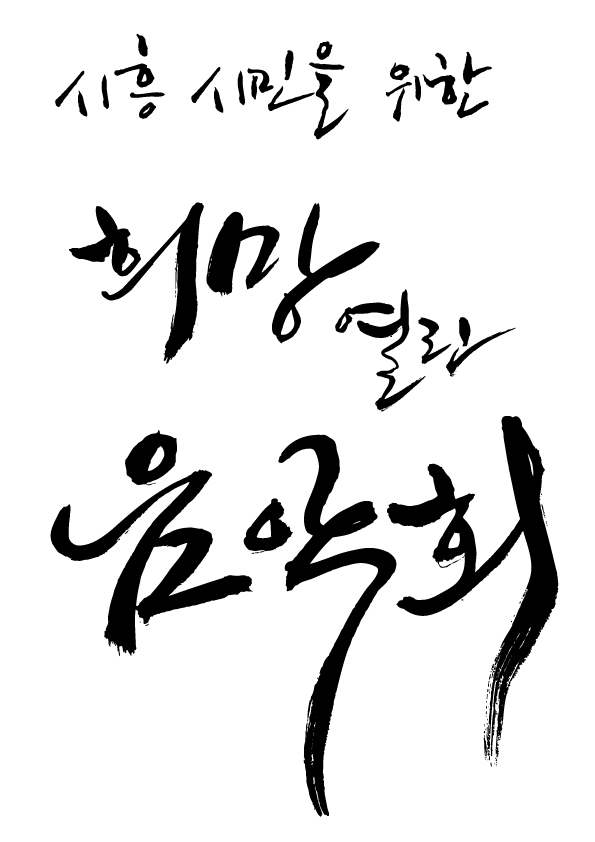 시흥 시민을 위한
희망 열린
음악회